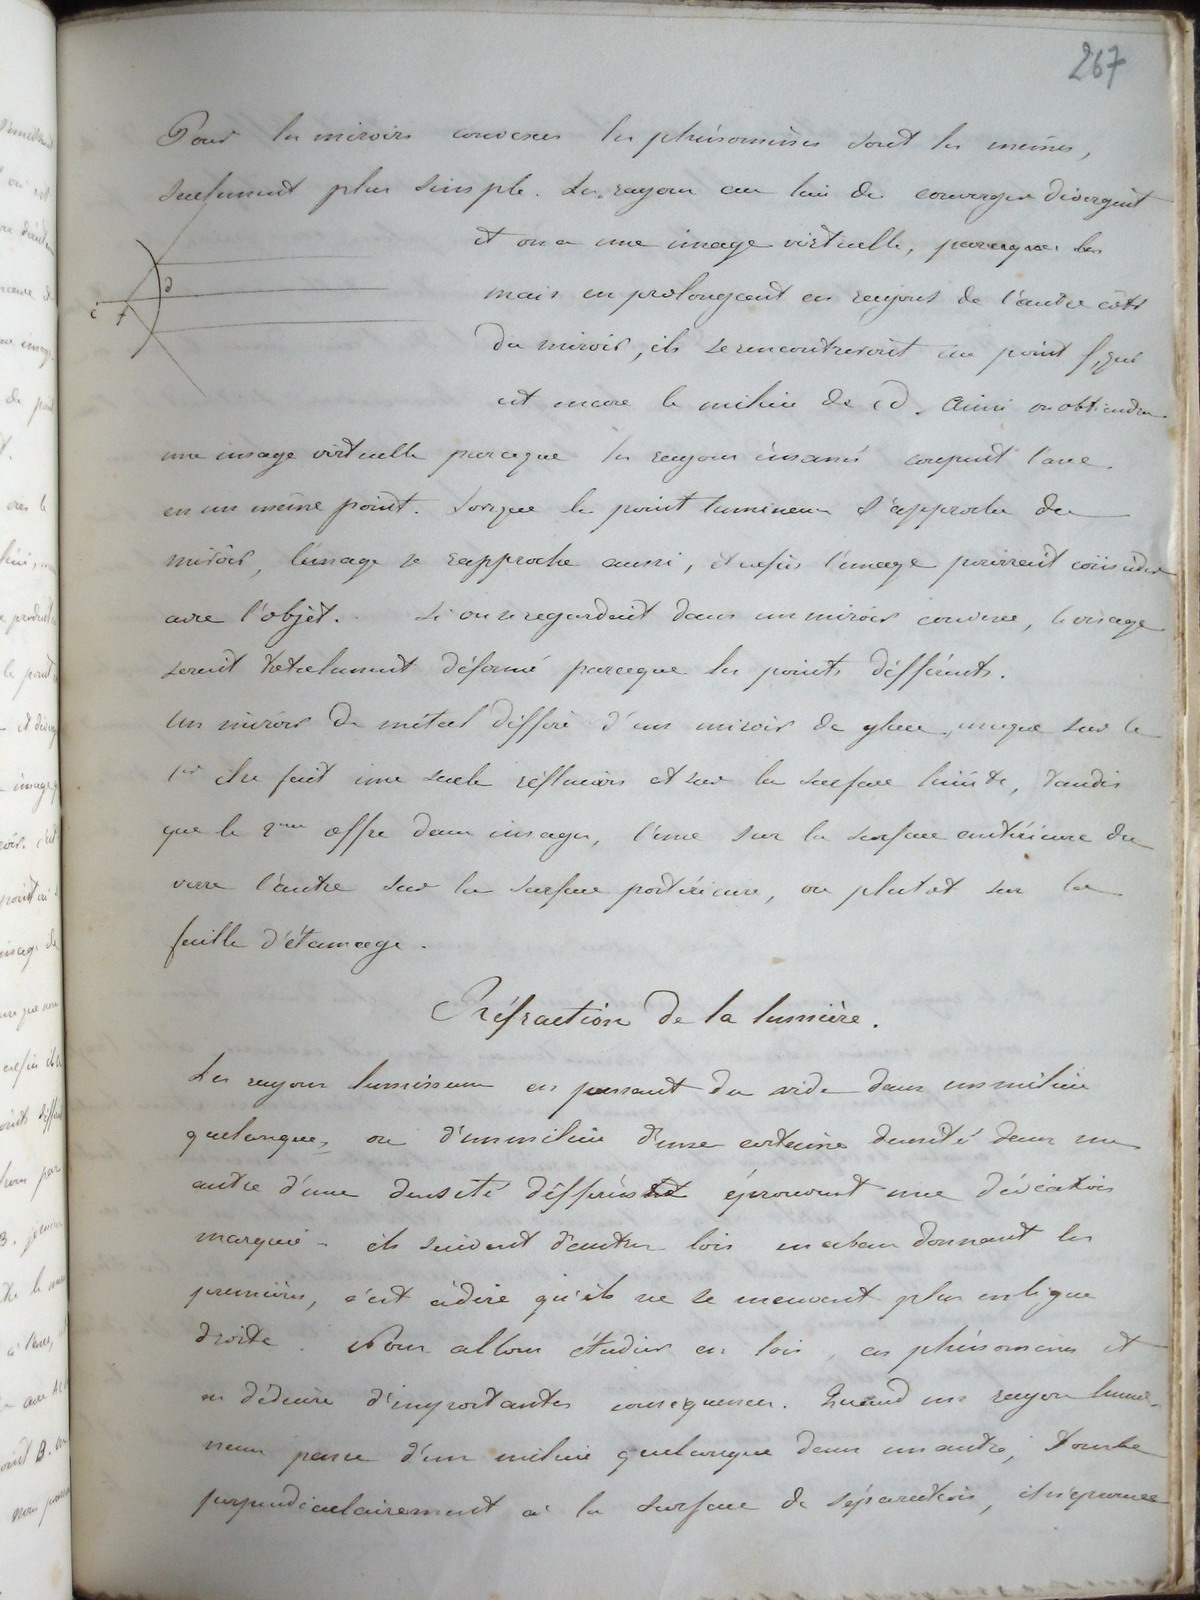 267
Pour les miroirs convexes les phénomènes sont les mêmes,
seulement plus simple. Les rayons au lieu de converger divergent
et on a une image virtuelle, parceque les
mais en prolongeant ces rayons de l'autre côté
du miroir, ils se rencontreront en un point f, qui
est encore le milieu de cd. Ainsi on obtiendra
une image virtuelle parceque les rayons émanés coupent l'axe
en un même point. Lorsque le point lumineux s'approche du
miroir, l'image se rapproche aussi, et enfin l'image pourrait coïncider
avec l'objet. Si on se regardait dans un miroir convexe, le visage
serait totalement déformé parceque les points différents.
Un miroir de métal diffère d'un miroir de glace, en ce que sur le
1er il se fait une seule réflexion et sur la surface limite, tandis
que le 2me offre deux images, l'une sur la surface antérieure du
verre l'autre sur la surface postérieure, ou plutot sur la
feuille d'étamage.
Réfraction de la lumière.
Les rayons lumineux en passant du vide dans un milieu
quelconque, ou d'un milieu d'une certaine densité dans un
autre d'une densité différente éprouvent une déviation
marquée - ils suivent d'autres lois en abandonnant les
premières, c'est à dire qu'ils ne se meuvent plus en ligne
droite. Nous allons étudier ces lois, ces phénomènes et
en déduire d'importantes conséquences. Quand un rayon lumi-
neux passe d'un milieu quelconque dans un autre, tombe
perpendiculairement à la surface de séparation, il n'éprouve
c f d